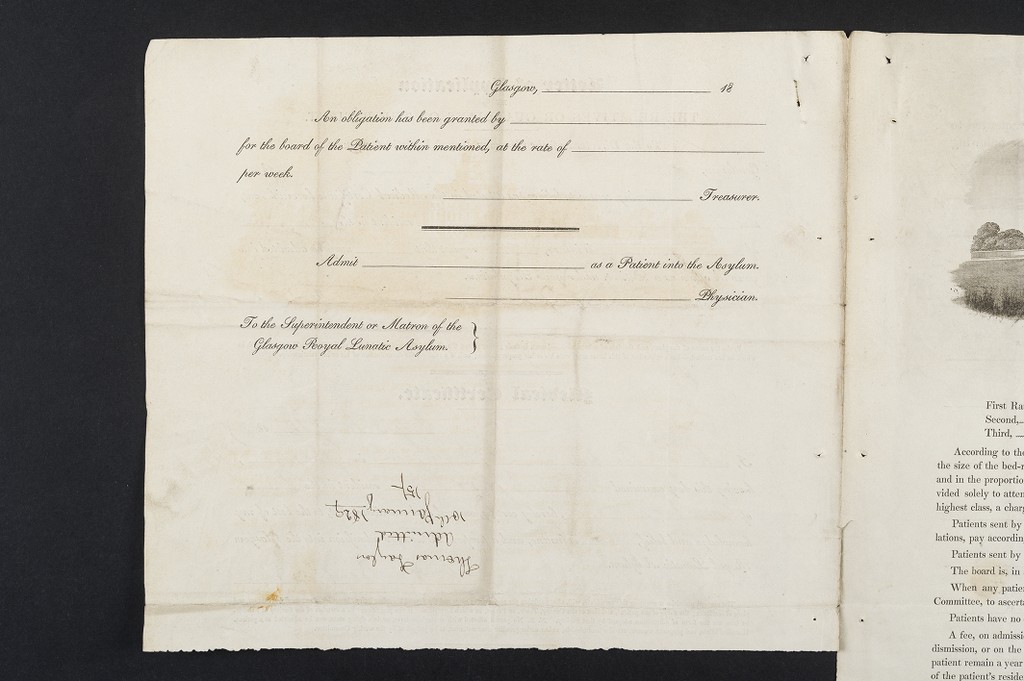 Glasgow, 18
An obligation has been granted by
for the board of the Patient within mentioned, at the rate of
per week.
Treasurer.
Admit as a Patient into the Asylum.
Physician.
To the Superintendent or Matron of the
Glasgow Royal Lunatic Asylum.
Thomas Taylor
Admitted
10th January 1829
15/
First Ra
Second,
Third,
According to the
the size of the bed-r
and in the proportio
vided solely to atten
highest class, a charg
Patients sent by
lations, pay accordin
Patients sent by
The board is, in
When any patie
Committee, to ascerta
Patients have no
A fee, on admissi
dismission, or on the
patient remain a year
of the patient's reside